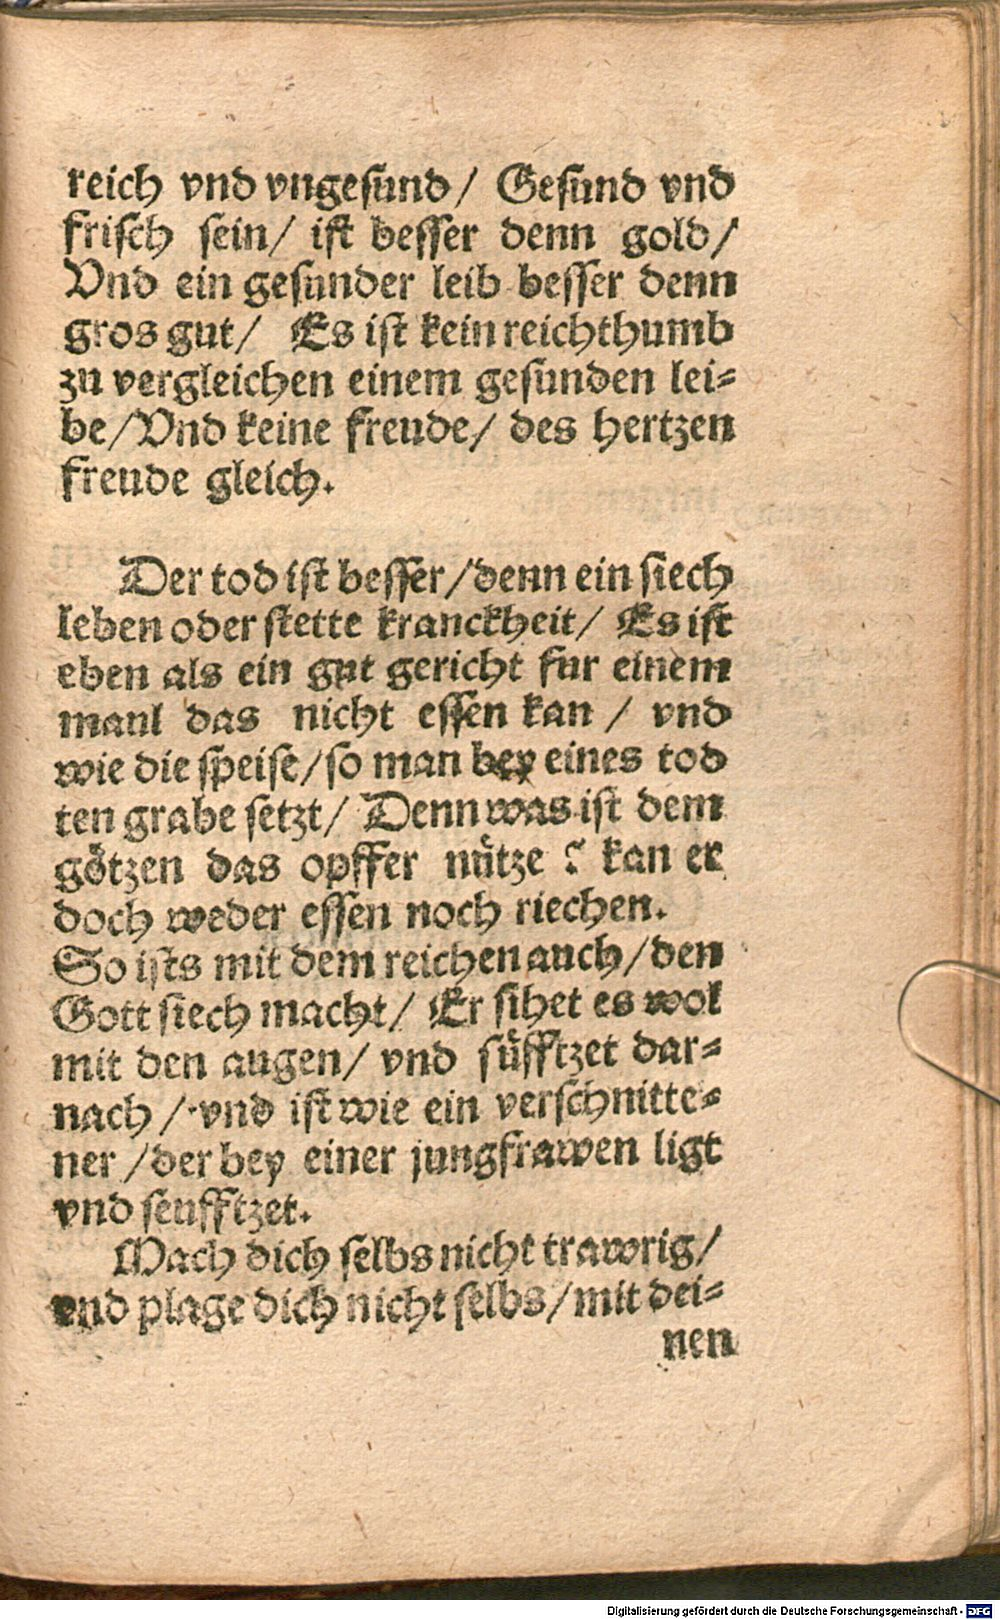 reich vnd vngesund/ Gesund vnd
frisch sein/ ist besser denn gold/
Vnd ein gesunder leib besser denn
gros gut/ Es ist kein reichthumb
zu vergleichen einem gesunden lei-
be/Vnd keine freude/ des hertzen
freude gleich.
Der tod ist besser/denn ein siech
leben oder stette kranckheit/ Es ist
eben als ein gut gericht fur einem
maul das nicht essen kan / vnd
wie die speise/so man bey eines tod
ten grabe setzt/ Denn was ist dem
götzen das opffer nütze ? kan er
doch weder essen noch riechen.
So ists mit dem reichen auch/den
Gott siech macht/ Er sihet es wol
mit den augen/ vnd süfftzet dar-
nach / vnd ist wie ein verschnitte-
ner /der bey einer jungfrawen ligt
vnd seufftzet.
Mach dich selbs nicht trawrig/
vnd plage dich nicht selbs/mit dei-
nen
Digitalisierung gefördert durch die Deutsche Forschungsgemeinschaft - DFG